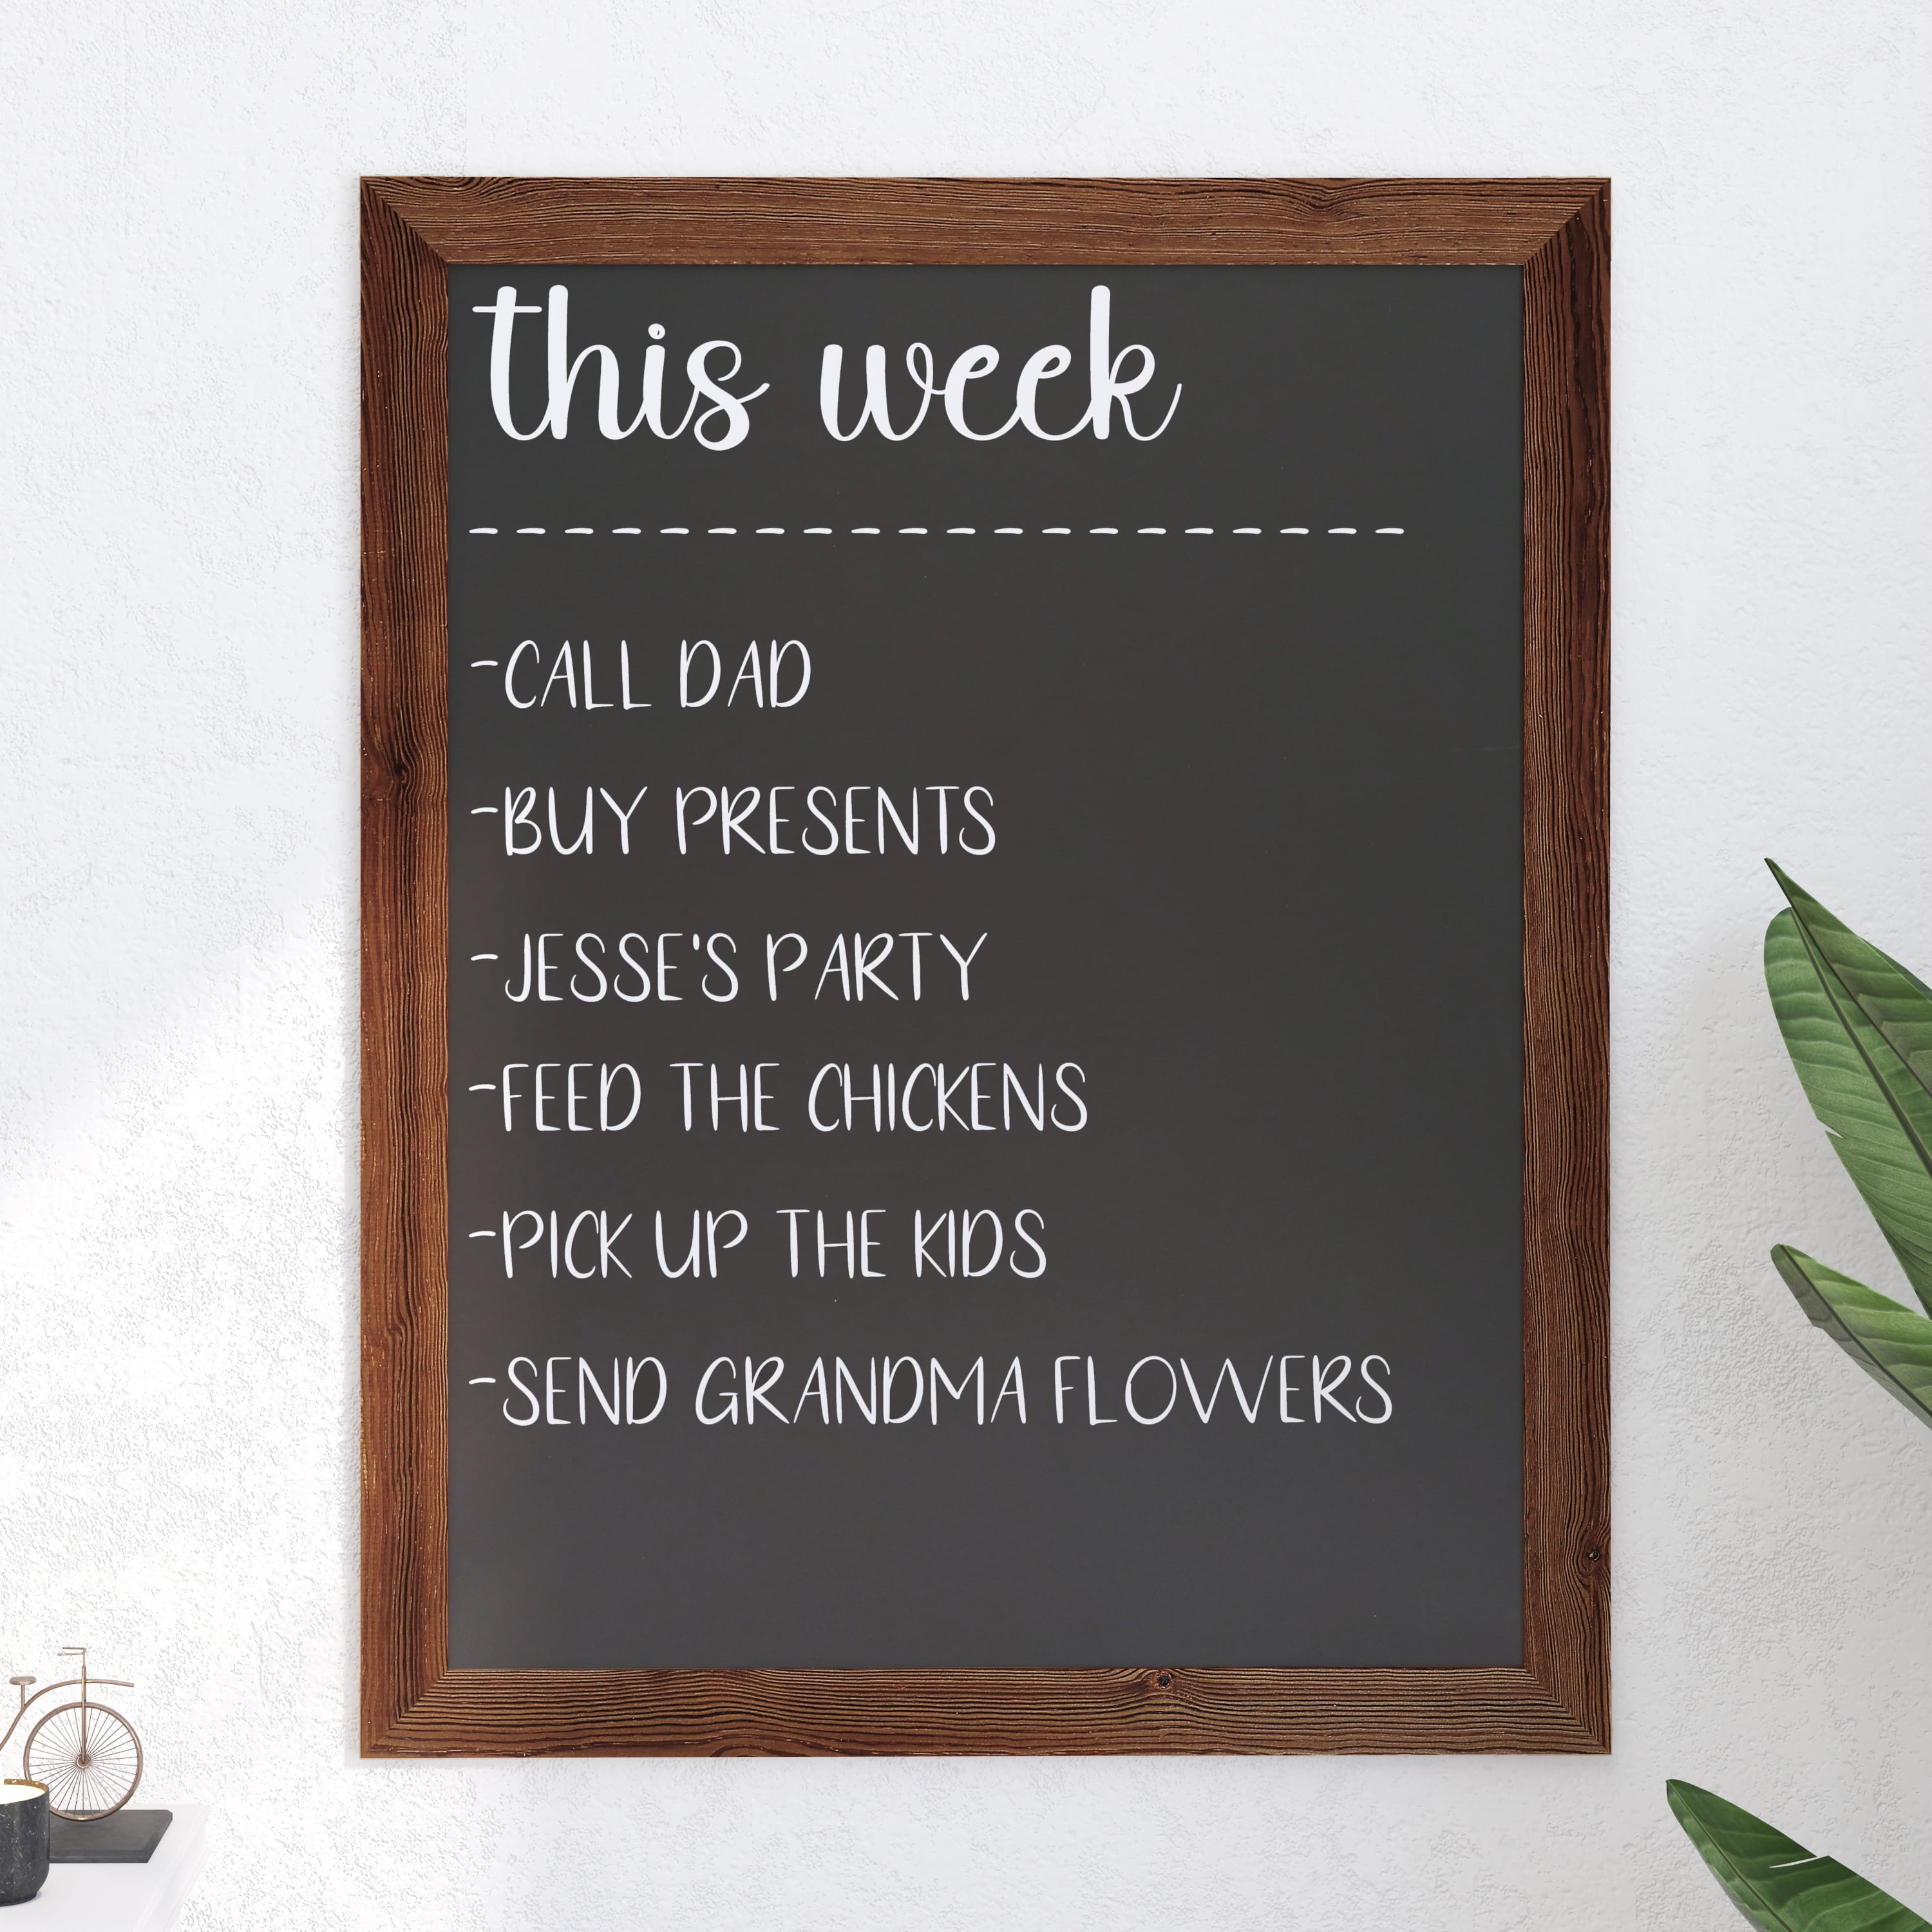 this week
--------------------
-CALL DAD
-BUY PRESENTS
-JESSE'S PARTY
-FEED THE CHICKENS
-PICK UP THE KIDS
-SEND GRANDMA FLOWERS